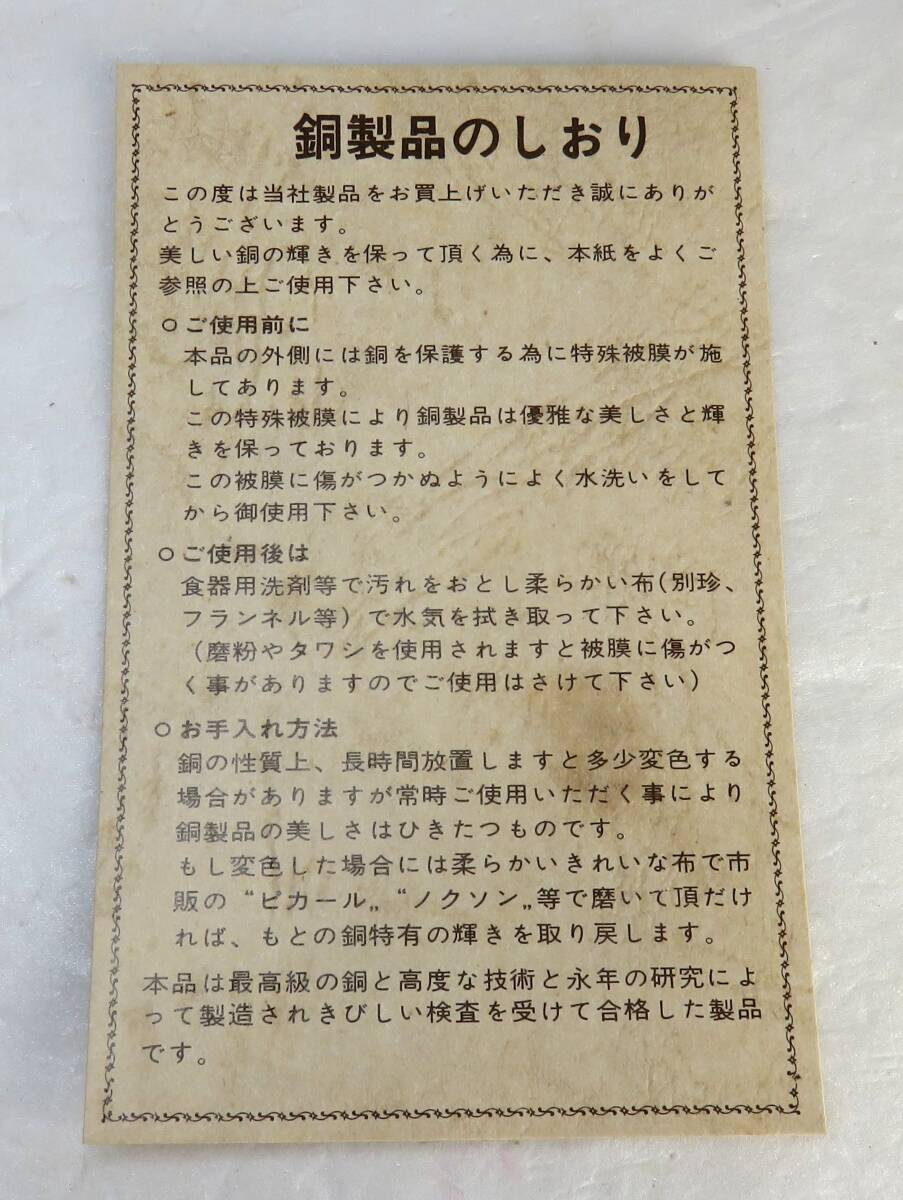 銅製品のしおり
この度は当社製品をお買上げいただき誠にありが
とうございます。
美しい銅の輝きを保って頂く為に、本紙をよくご
参照の上ご使用下さい。
○ご使用前に
本品の外側には銅を保護する為に特殊被膜が施
してあります。
この特殊被膜により銅製品は優雅な美しさと輝
きを保っております。
この被膜に傷がつかぬようによく水洗いをして
から御使用下さい。
○ご使用後は
食器用洗剤等で汚れをおとし柔らかい布(別珍、
フランネル等)で水気を拭き取って下さい。
(磨粉やタワシを使用されますと被膜に傷がつ
く事がありますのでご使用はさけて下さい)
○お手入れ方法
銅の性質上、長時間放置しますと多少変色する
場合がありますが常時ご使用いただく事により
銅製品の美しさはひきたつものです。
もし変色した場合には柔らかいきれいな布で市
販の“ピカール„ “ノクソン„等で磨いて頂だけ
れば、もとの銅特有の輝きを取り戻します。
本品は最高級の銅と高度な技術と永年の研究によ
って製造されきびしい検査を受けて合格した製品
です。